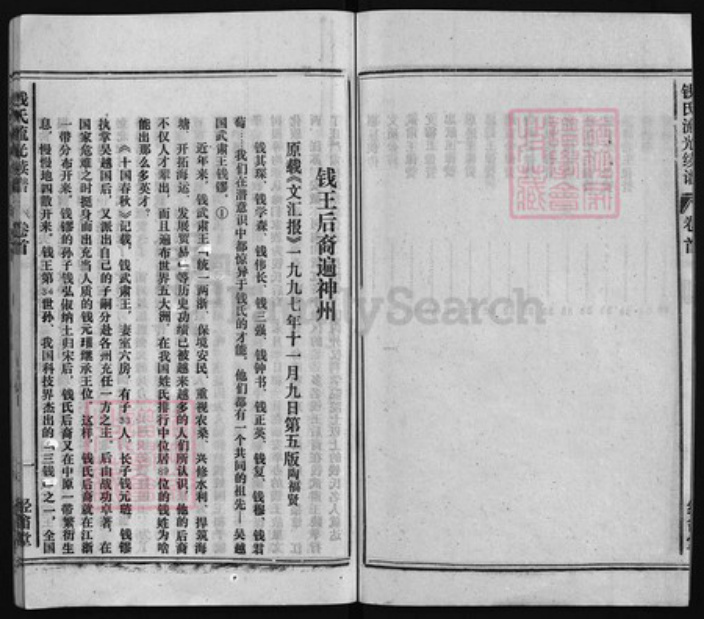 钱氏流光续谱
卷首
钱王后裔遍神州
原载《文汇报》一九九七年十一月九日第五版 陶福贤
钱其琛、钱学森、钱伟长、钱三强、钱钟书、钱正英、钱复、钱穆、钱君
萄……我们在潜意识中都惊异于钱氏的才能，他们都有一个共同的祖先——吴越
国武肃王钱镠。①
近年来，钱武肃王「统一两浙、保境安民、重视农桑、兴修水利、捍筑海
塘、开拓海运、发展贸易」等历史功绩已被越来越多的人们所认识，他的后裔
不仅人才辈出，而且遍布世界五大洲，在我国姓氏排行中位居 位的钱姓为啥
能出那么多英才。
《十国春秋》记载，钱武肃王，妻室六房，有子 人，长子钱元 ，钱镠
执掌吴越国后，又派出自己的子嗣分赴各州充任一方之主，后由战功卓著、在
国家危难之时挺身而出充当人质的钱元瓘继承王位，这样，钱氏后裔就在江浙
一带分布开来，钱镠的孙子钱弘俶纳土归宋后，钱氏后裔又在中原一带繁衍生
息，慢慢地四散开来，钱王第 世孙、我国科技界杰出的「三钱」之一，全国
钱氏流光续谱
卷首
一
经畲堂
FamilySearch